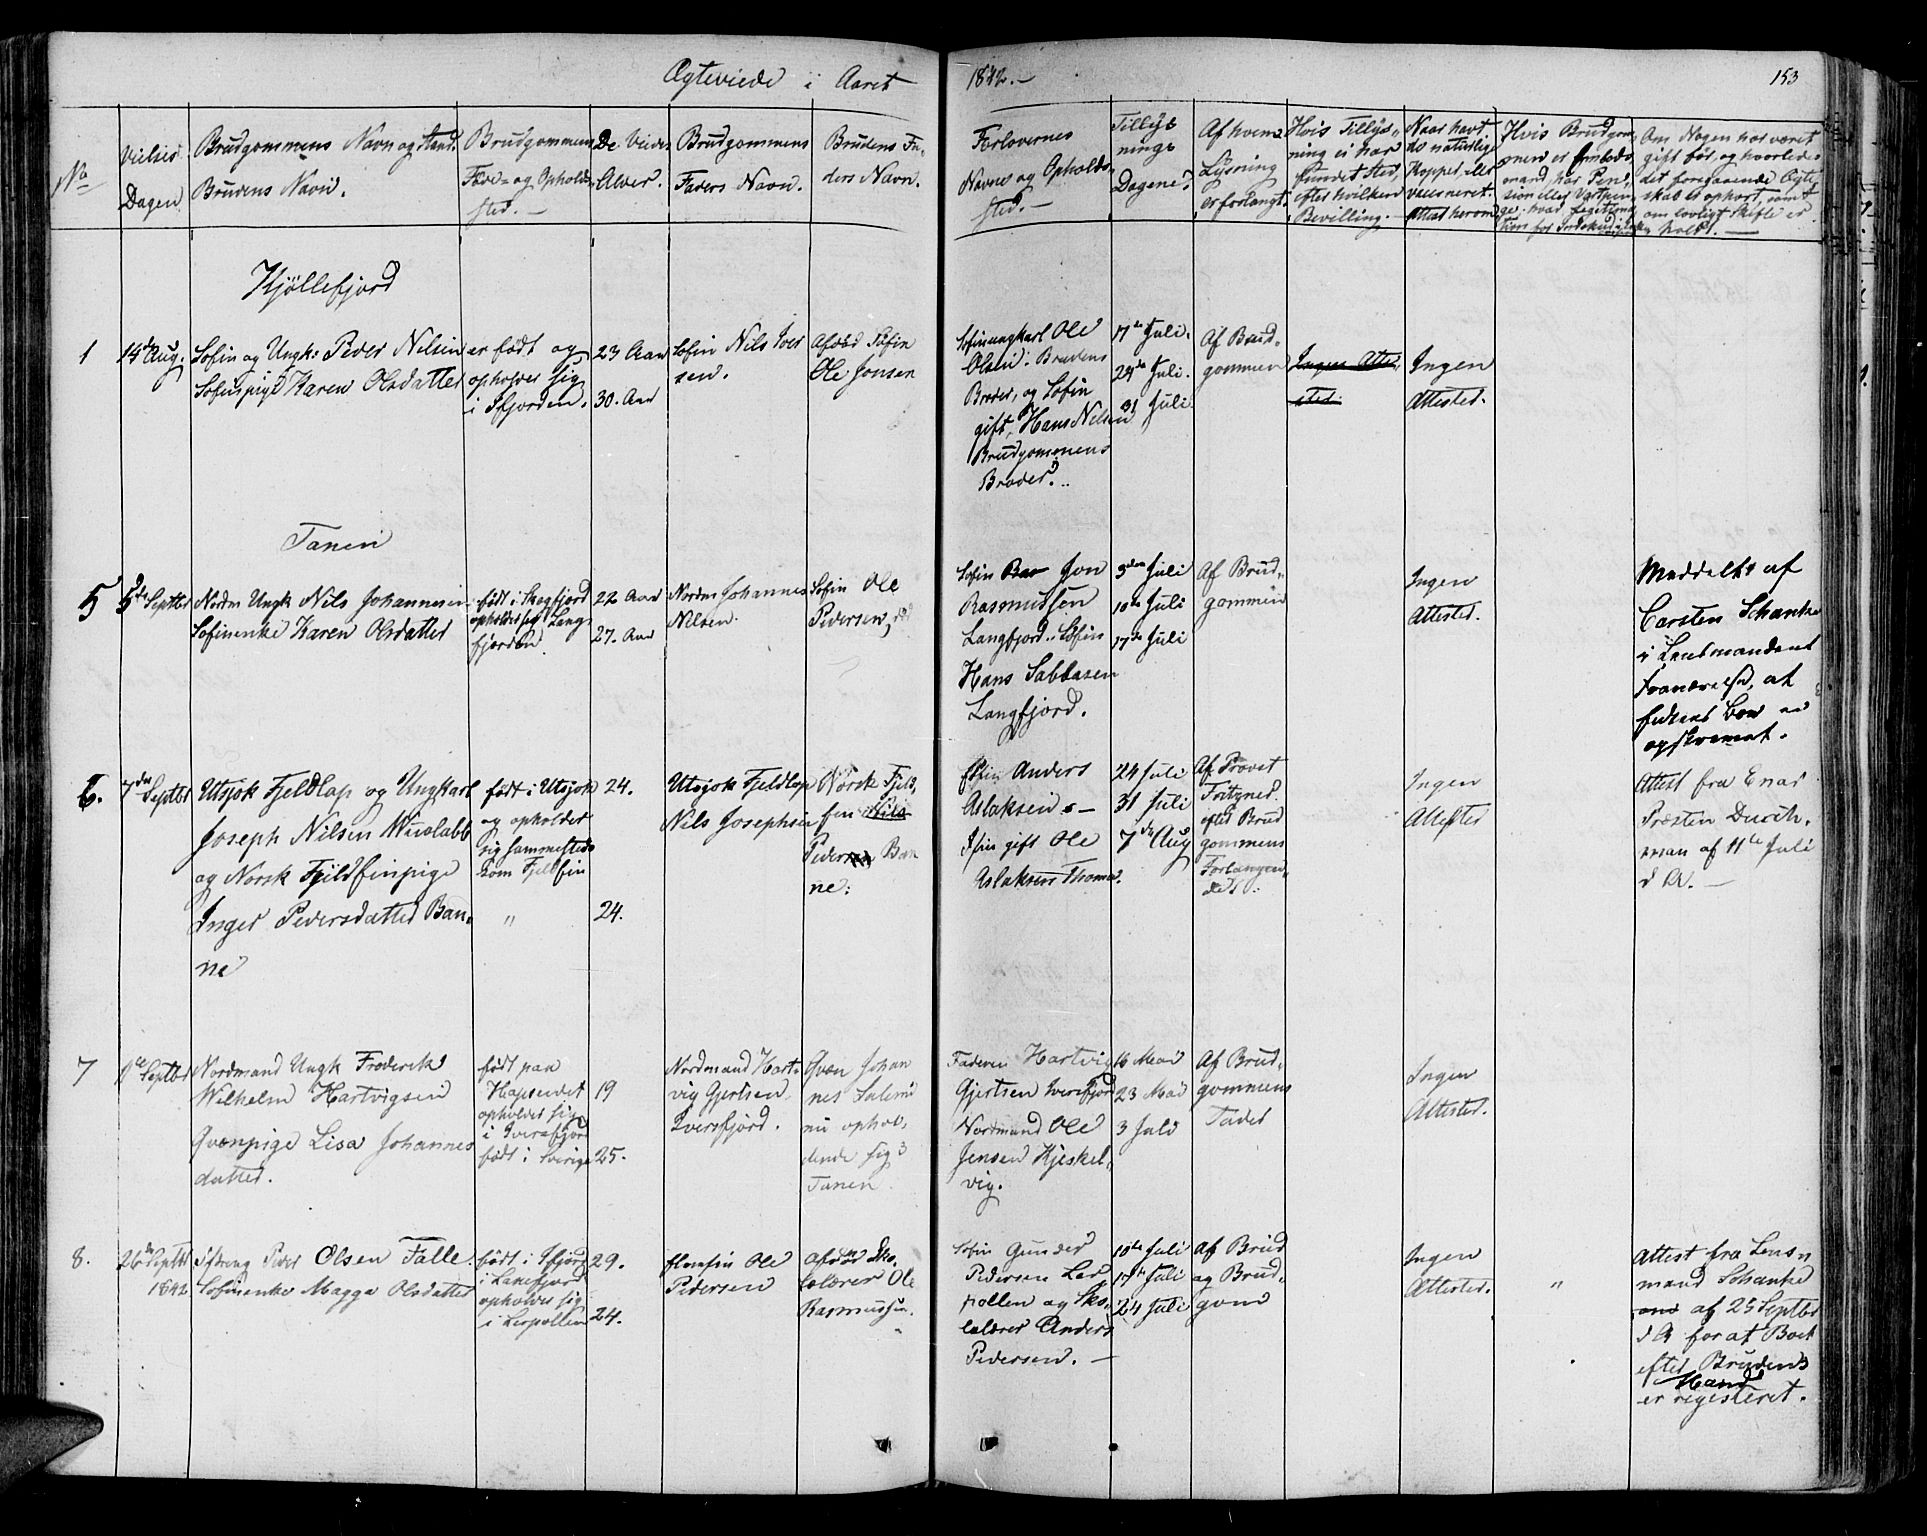 Ægteviede i Aaret
1842.-
153
No
Vielses
Dagen
Brudgommens Navn og Stand.
Brudens Navn.
Brudgommens
Føde- og Opholds-
sted.-
De Viedes
Alder.
Brudgommens
Faders Navn.
Brudens Fa-
ders Navn.
Forlovernes
Navne og Opholds-
sted.-
Tillys
nings
Dagene.
Af hvem
Lysning
er forlangt.
Hvis Tillys-
ning ei har
fundet Sted,
efter hvilken
Bevilling.-
Naar havt
de naturlige
Kopper, eller
vaccineret.
Attest herom
Hvis Brudgom-
men er Embeds
mand, har Pen-
sion eller
Om Nogen har været
gift før, og hvorledes
det foregaaende Ægte
skab er ophørt, samt
om lovligt Skifte er
holdt.-
Kjøllefjord
1
14de Aug.
Søfin og Ungk: Peder Nilsen
Søfinpige Karen Olsdatter
er født og
opholder sig
i Ifjorden.
23 Aar
30. Aar
Søfin Nils Iver
sen.
Afdød Søfin
Ole Jonsen
Søfinungkarl Ole
Olsen: Brudens
Broder, og Søfin
gift, Hans Nilsen
Brudgommens
Broder.
17de Juli.
24de Juli.
31 Juli.
Af Brud-
gommen
Ingen Attes-
ter.
Ingen
Attester.
Tanen
5
3de Septbr
Nordm Ungk Nils Johannesen
Søfinenke Karen Olsdatter
født i
opholder sig Lang
fjorden.
22 Aar
27. Aar
Nordm Johannes
Nilsen.
Søfin Ole
Pedersen,
Søfin Jon
Rasmussen
Langfjord. Søfin
Hans Sabbasen
Langfjord.
3den Juli
10de Juli
17de Juli
Af Brud-
gommen
Ingen
Attester.
Meddelt af
Carsten Schanke
i Lensmandens
Fraværelse, at
Boe er
6.
7de Septbr
Utsjok Fjeldlap og Ungkarl
Joseph Nilsen Wuolabb
og Norsk Fjeldfinpige
Inger Pedersdatter Ban-
ne
født i Utsjok
og opholder
sig sammesteds
som Fjeldfin
"
24.
24.
Utsjok Fjeldlap
Nils Josephsen
Norsk Fjeld-
fin Nils
Pedersen Ban
ne:
Anders
Aslaksen
gift Ole
Aslaksen Thomas.
24 Juli
31 Juli
7de Aug
Af Provst
Fritzner
efter Brud
gommens
Forlangen-
de.
Ingen
Attester
Attest fra Enar
Præsten Durch-
man af 11te Juli
d A.-
7
Septbr
Nordmand Ungk Frederik
Wilhelm Hartvigsen
Qvænpige Lisa Johannes
datter.
født paa
opholder sig
i Iversfjord
født i Sverige
19
25.
Nordmand Hart-
vig Gjertsen
Iversfjord.
Qvæn Johan
nes Salemi
nu ophol-
dende sig i
Tanen
Faderen Hartvig
Gjertsen Iversfjord
Nordmand Ole
Jensen Kjeskel-
vig.
16 Mai
23 Mai
3 Juli
Af Brud-
gommens
Fader
Ingen
Attester.
8.
26de Septbr
1842
Peder Olsen Falle.
Søfinenke Magga Olsdatter
født i Ifjord
i Laxefjord
opholder sig
i Lerpollen
29.
24.
Ole
Pedersen
Afdød Sko-
lelærer Ole
Rasmussen.
Søfin Gunder
Pedersen Ler
pollen og Sko-
lelærer Anders
Pedersen.-
10de Juli
17de Juli
24 Juli
Af Brud
og Brud-
gom
Ingen
Attester.
"
Attest fra Lens-
mand Schanke
af 25 Septbr
d A for at Boet
efter Brudens
Mand
er registeret.